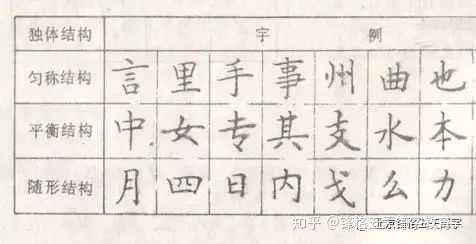 独体结构 字 例
匀称结构 言 里 手 事 州 曲 也
平衡结构 中 女 专 其 支 水 本
随形结构 月 四 日 内 戈 么 力
知乎